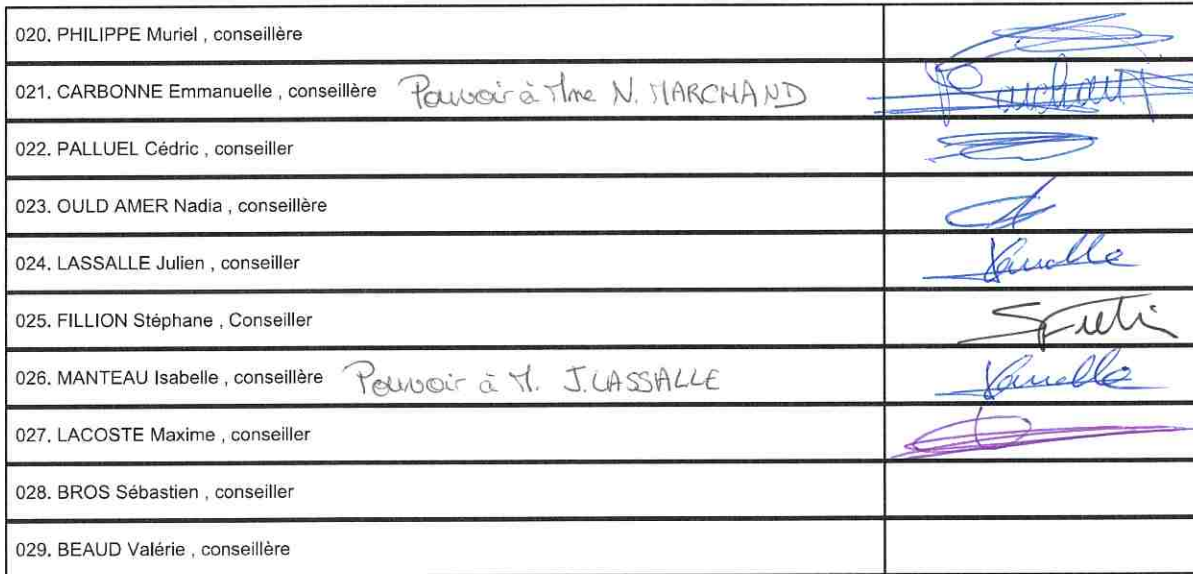 020. PHILIPPE Muriel , conseillère
021. CARBONNE Emmanuelle , conseillère Pouvoir à Mme N. MARCHAND
022. PALLUEL Cédric , conseiller
023. OULD AMER Nadia , conseillère
024. LASSALLE Julien , conseiller
025. FILLION Stéphane , Conseiller
026. MANTEAU Isabelle , conseillère Pouvoir à M. J. LASSALLE
027. LACOSTE Maxime , conseiller
028. BROS Sébastien , conseiller
029. BEAUD Valérie , conseillère